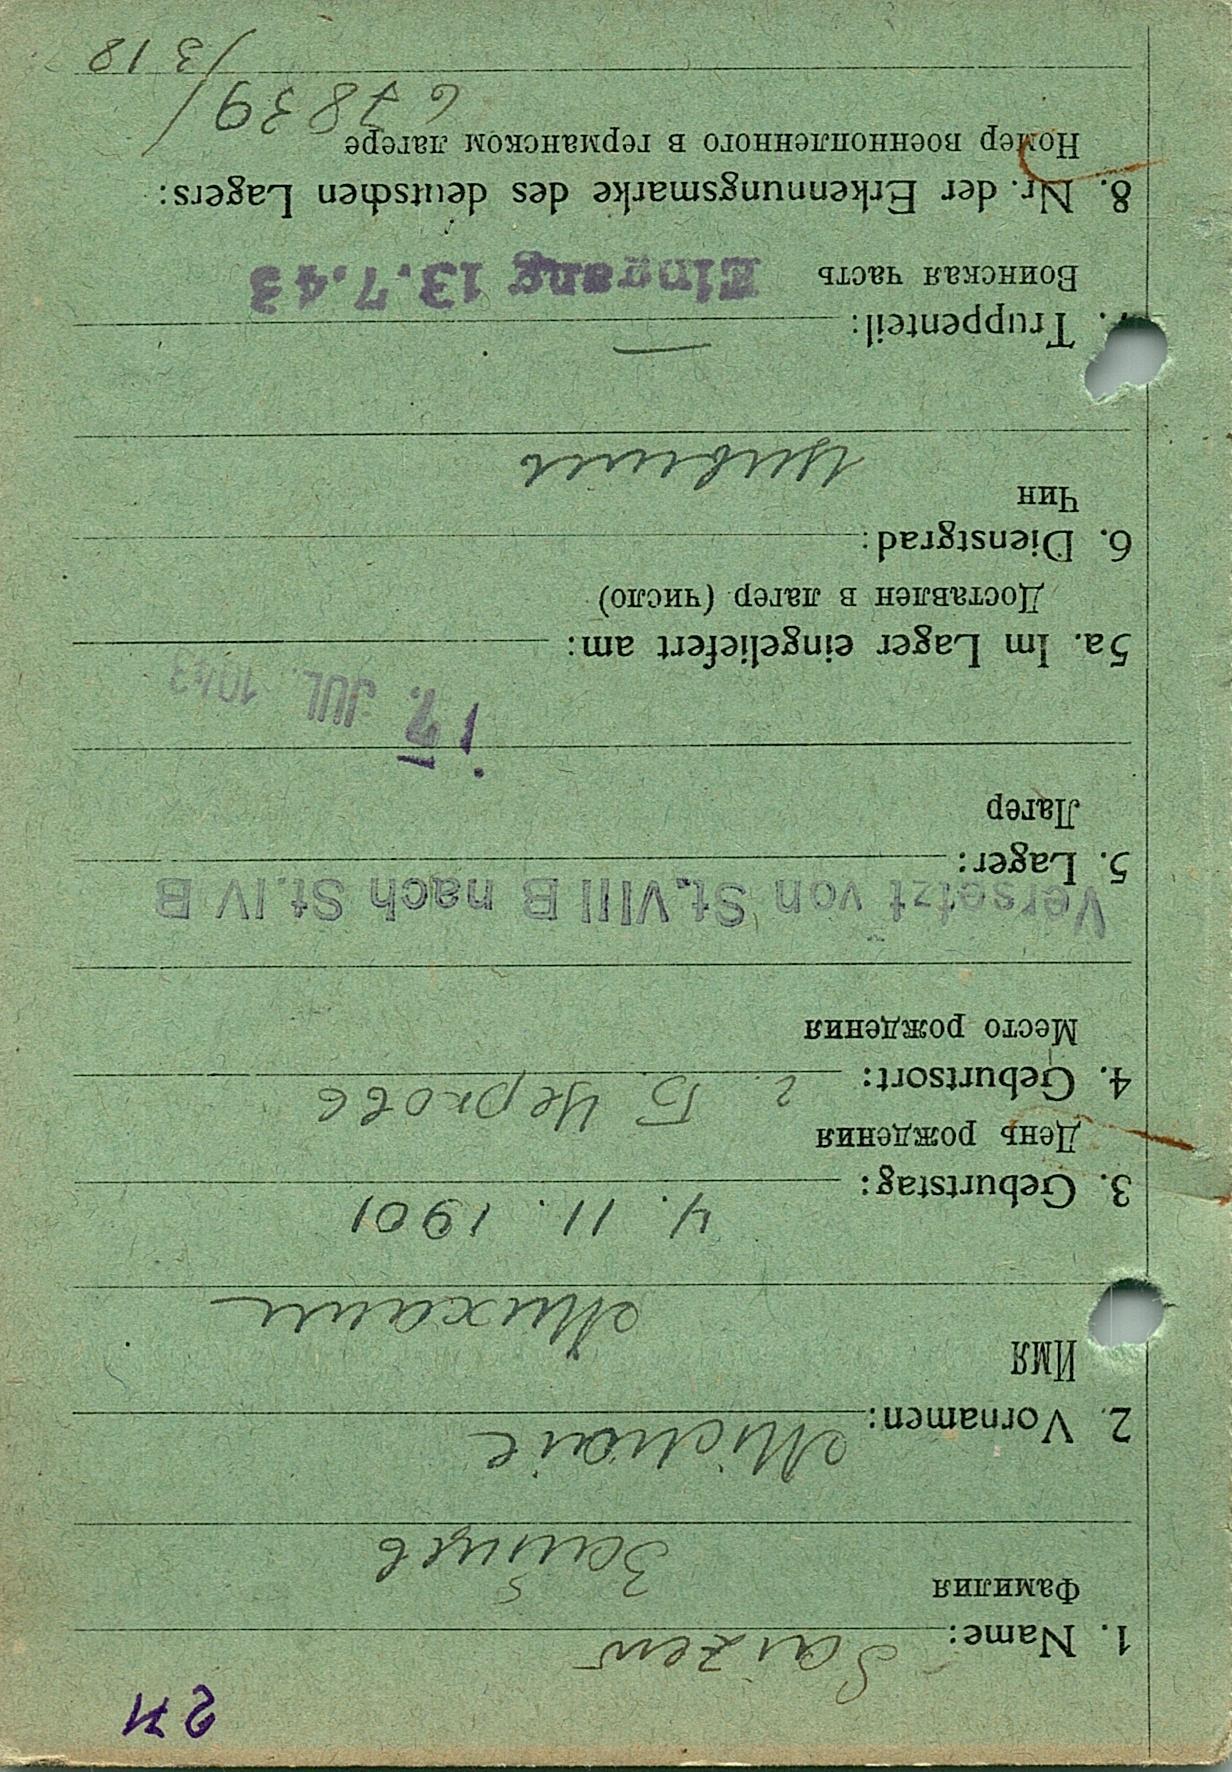 1. Name: Saizew
Фамилия
Зайцев
2. Vornamen: Michail
Имя
Михаил
3. Geburtstag: 4. 11. 1901
День рождения
4. Geburtsort: г. Б Церковь
Место рождения
Versetzt von St. VIII B nach St. IV B
5. Lager:
Лагер
17. JUL. 1943
5a. Im Lager eingeliefert am:
Доставлен в лагер (число)
6. Dienstgrad:
Чин
7. Truppenteil: —
Воинская часть
Eingang 13.7.43
8. Nr. der Erkennungsmarke des deutschen Lagers:
Номер военнопленного в германском лагере
67839/
/318